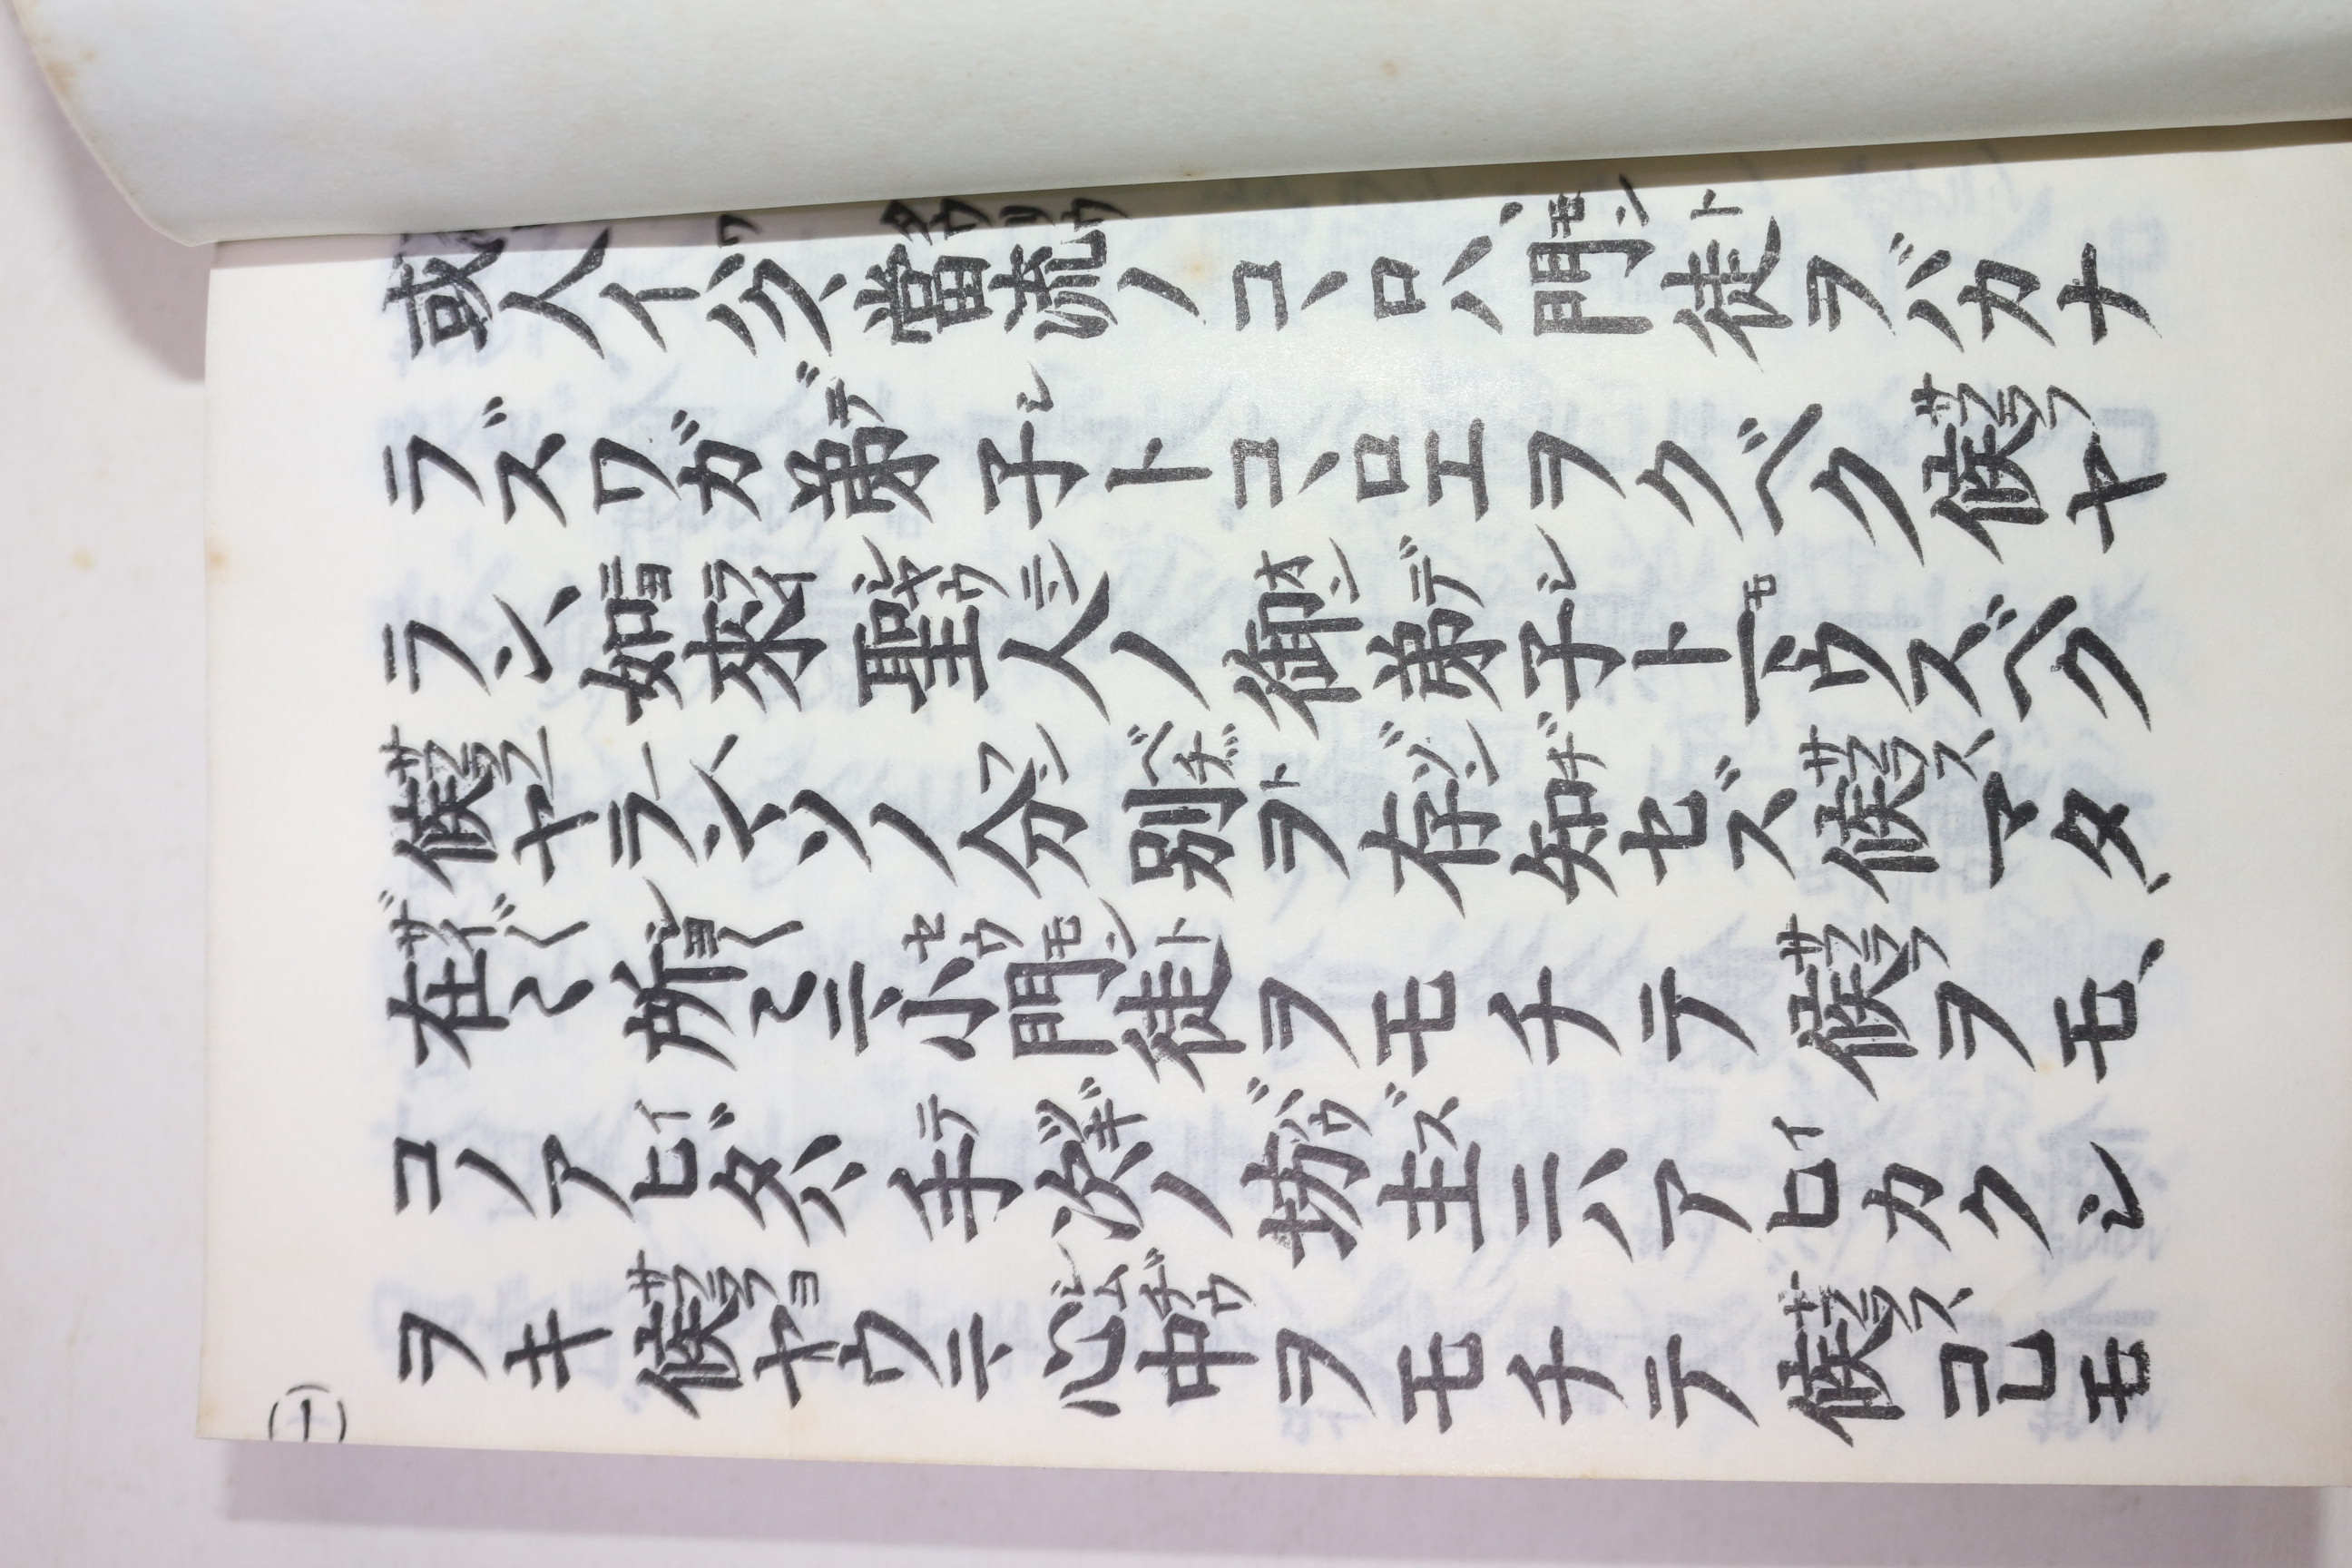 或人イハク、當流ノコヽロハ、門徒ヲバカナ
ラズワガ弟子トコヽロエヲクベク候ヤ
ラン、如來聖人ノ御弟子トマウスベク
候ヤラン、ソノ分別ヲ存知セズ候マタ、
在〻所〻ニ、小門徒ヲモチテ候ヲモ、
コノアヒダハ、手次ノ坊主ニハアヒカクシ
ヲキ候ヤウニ、心中ヲモチテ候コレモ
(一)